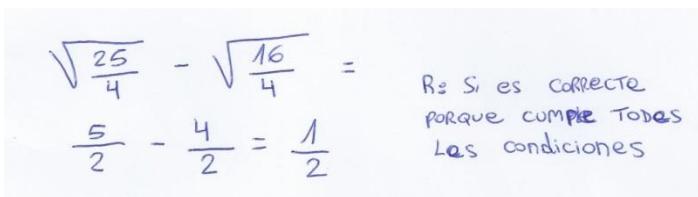 √25/4 - √16/4 =
5/2 - 4/2 = 1/2
R: Si es correcte
porque cumple todes
les condiciones